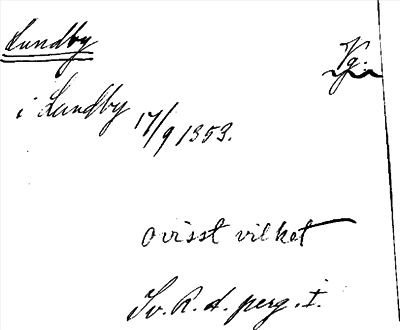 Lundby Vg.
i Lundby 17/9 1353.
ovisst vilket
Sv. R. A. perg. I.